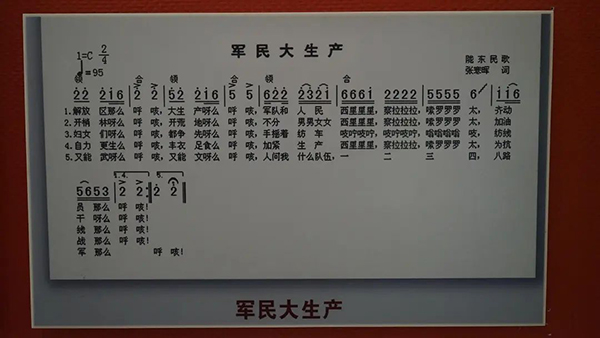 军民大生产
1=C 2/4
♩=95
陇东民歌
张寒晖 词
领 合 领 合 领 合
2 2 2 1 6 2 2 5 2 2 2 1 6 5 5 6 2 2 2 3 2 1 2 2 2 2 2 2 2 2 5 5 5 5 6 1 1 6
1.解放 区那么 呼 咳,大生 产呀么 呼 咳,军队和 人 民 西里里里,察拉拉拉,嗦罗罗罗 太,齐动
2.开锅 林呀么 呼 咳,开荒 地呀么 呼 咳,不分 男男女女 西里里里,察拉拉拉,嗦罗罗罗 太,加油
3.妇女 们呀么 呼 咳,都争 先呀么 呼 咳,手摇着 纺 车 吱咛吱咛,吱咛吱咛,嗡嗡嗡嗡 吱,纺线
4.自力 更生么 呼 咳,丰衣 足食么 呼 咳,加紧 生 产 西里里里,察拉拉拉,嗦罗罗罗 太,为抗
5.又能 武呀么 呼 咳,又能 文呀么 呼 咳,人问我 什么队伍,一 二 三 四,八路
5 6 5 3 2 2 2 2
员 那么 呼 咳!
干 呀么 呼 咳!
线 那么 呼 咳!
战 那么 呼 咳!
军 那么 呼 咳!
军民大生产